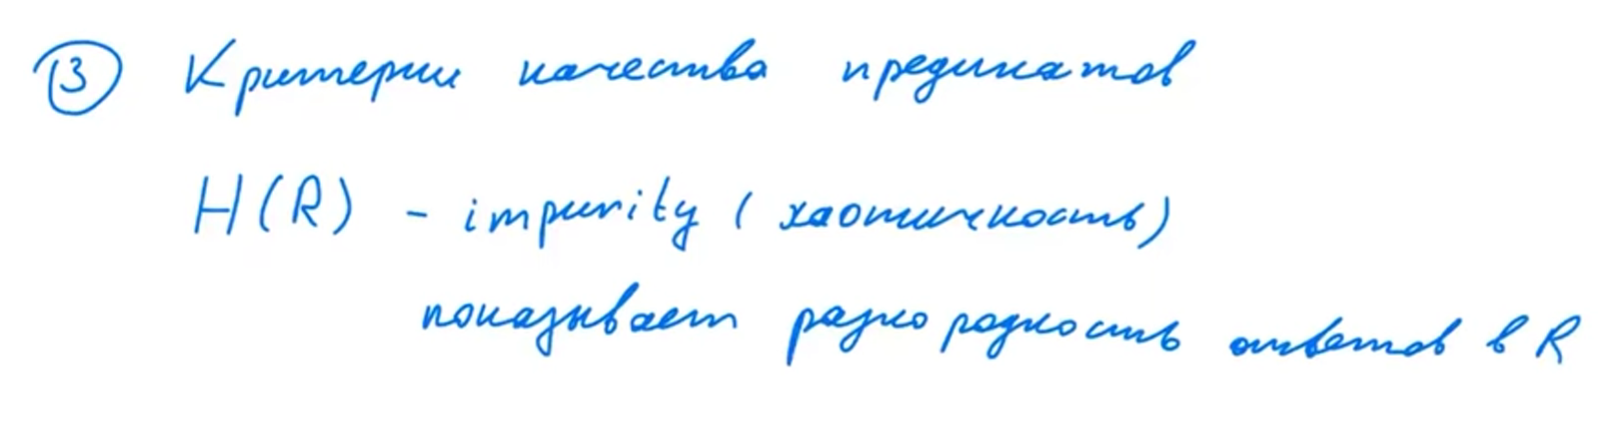 ③ Критерии качества предикатов
H(R) - impurity (хаотичность)
показывает разнородность ответов в R